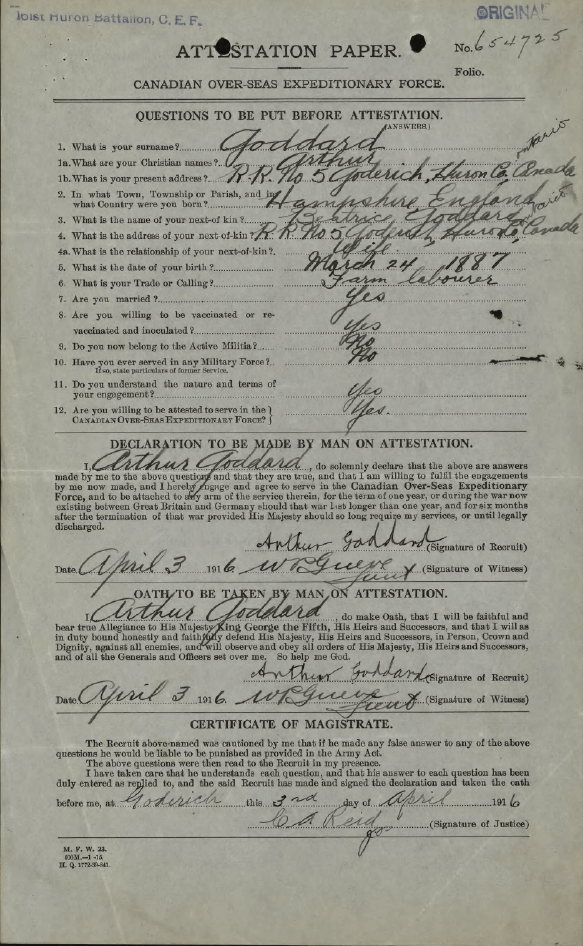 161st Huron Battalion, C. E. F.
ORIGINAL
ATTESTATION PAPER.
No. 654725
Folio.
CANADIAN OVER-SEAS EXPEDITIONARY FORCE.
QUESTIONS TO BE PUT BEFORE ATTESTATION.
(ANSWERS)
1. What is your surname? Goddard
1a. What are your Christian names? Arthur
1b. What is your present address? R.R. No 5 Goderich, Huron Co, Ontario Canada
2. In what Town, Township or Parish, and in
what Country were you born? Hampshire, England
3. What is the name of your next-of kin? Beatrice Goddard
4. What is the address of your next-of-kin? R R No 5 Goderich, Huron Co Ontario Canada
4a. What is the relationship of your next-of-kin? Wife
5. What is the date of your birth? March 24 1887
6. What is your Trade or Calling? Farm labourer
7. Are you married? Yes
8. Are you willing to be vaccinated or re-
vaccinated and inoculated? Yes
9. Do you now belong to the Active Militia? No
10. Have you ever served in any Military Force? No
If so, state particulars of former Service.
11. Do you understand the nature and terms of
your engagement? Yes
12. Are you willing to be attested to serve in the }
CANADIAN OVER-SEAS EXPEDITIONARY FORCE? } Yes.
DECLARATION TO BE MADE BY MAN ON ATTESTATION.
I, Arthur Goddard, do solemnly declare that the above are answers
made by me to the above questions and that they are true, and that I am willing to fulfil the engagements
by me now made, and I hereby engage and agree to serve in the Canadian Over-Seas Expeditionary
Force, and to be attached to any arm of the service therein, for the term of one year, or during the war now
existing between Great Britain and Germany should that war last longer than one year, and for six months
after the termination of that war provided His Majesty should so long require my services, or until legally
discharged.
Arthur Goddard (Signature of Recruit)
Date April 3 1916 Lieut (Signature of Witness)
OATH TO BE TAKEN BY MAN ON ATTESTATION.
I, Arthur Goddard, do make Oath, that I will be faithful and
bear true Allegiance to His Majesty King George the Fifth, His Heirs and Successors, and that I will as
in duty bound honestly and faithfully defend His Majesty, His Heirs and Successors, in Person, Crown and
Dignity, against all enemies, and will observe and obey all orders of His Majesty, His Heirs and Successors,
and of all the Generals and Officers set over me. So help me God.
Arthur Goddard (Signature of Recruit)
Date April 3 1916. Lieut (Signature of Witness)
CERTIFICATE OF MAGISTRATE.
The Recruit above-named was cautioned by me that if he made any false answer to any of the above
questions he would be liable to be punished as provided in the Army Act.
The above questions were then read to the Recruit in my presence.
I have taken care that he understands each question, and that his answer to each question has been
duly entered as replied to, and the said Recruit has made and signed the declaration and taken the oath
before me, at Goderich this 3rd day of April 1916
C A Reid (Signature of Justice)
M. F. W. 23.